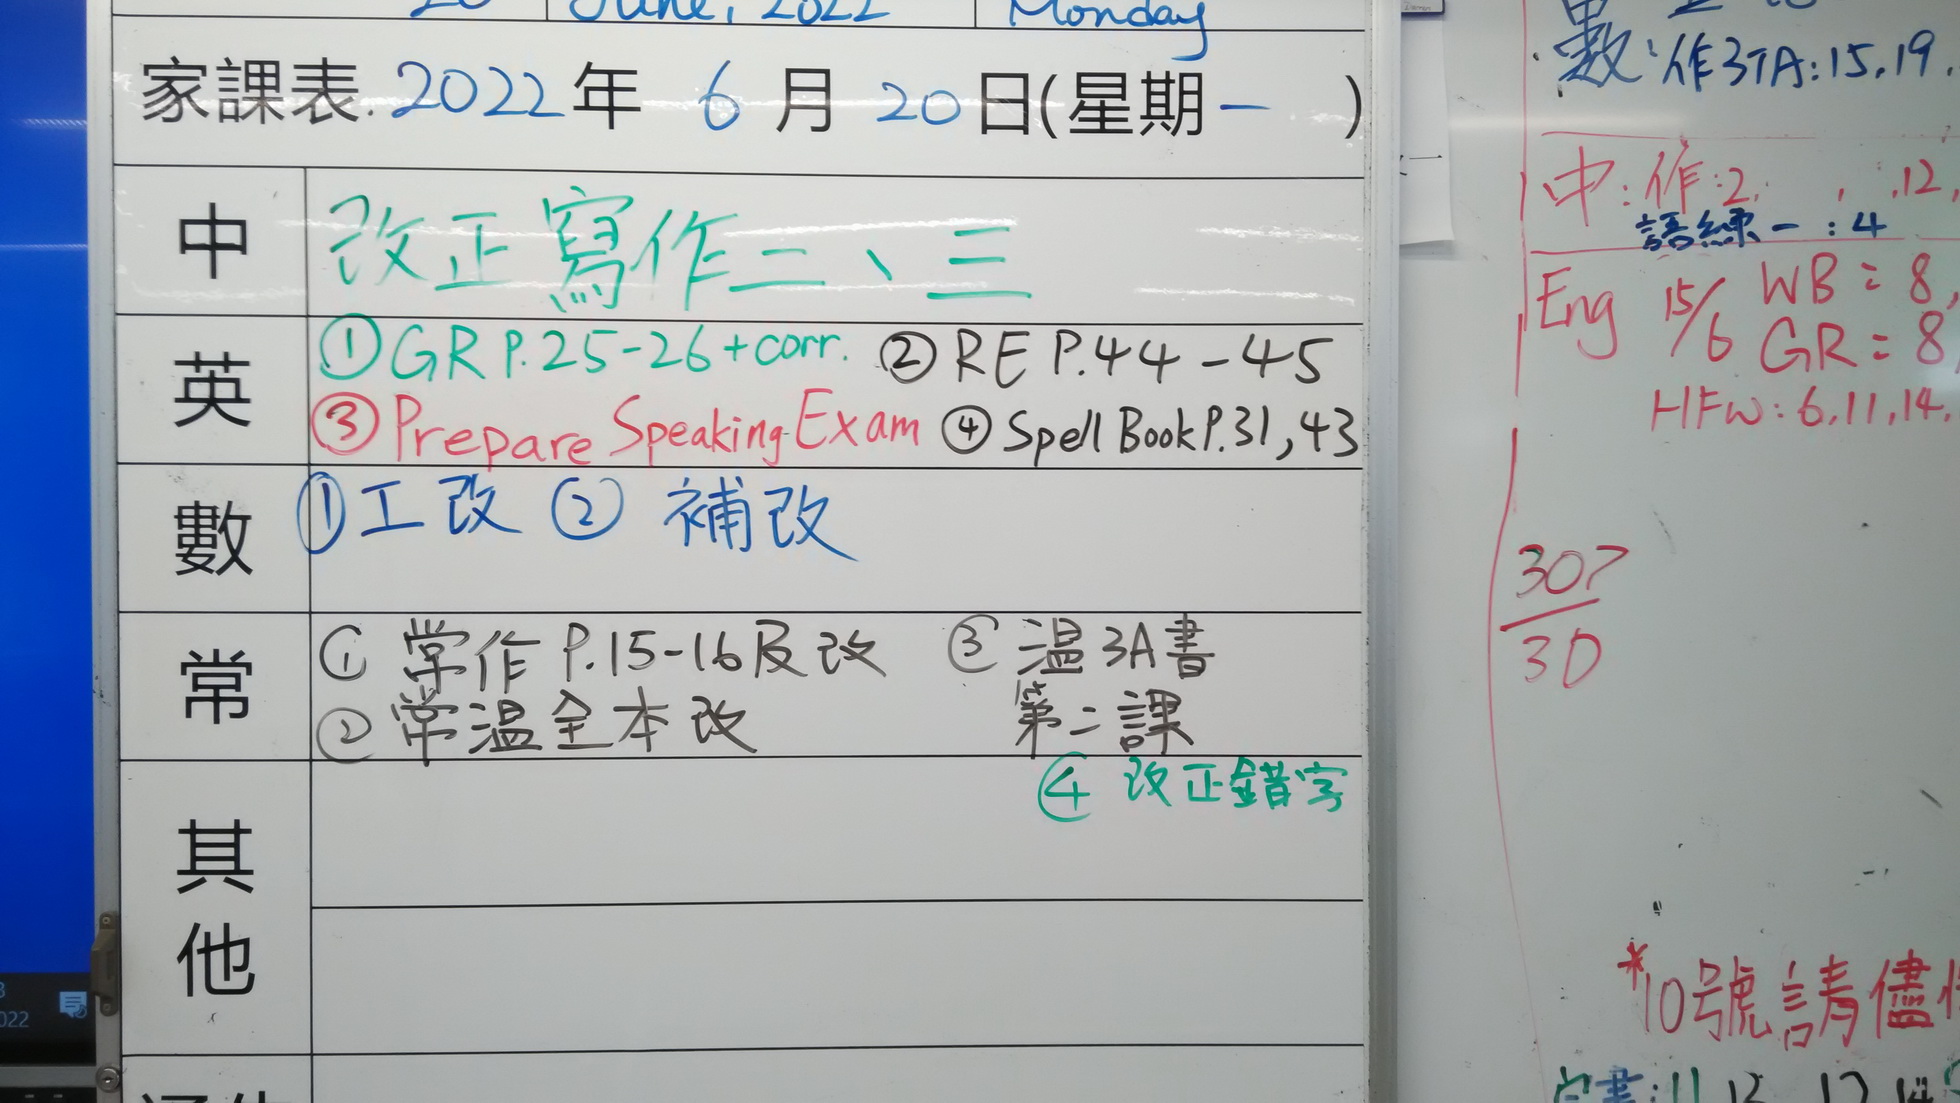 20 June, 2022 Monday
家課表 2022年 6月 20日(星期一 )
中 改正寫作二、三
英 ①GR P.25-26+corr. ②RE P.44-45
③Prepare Speaking Exam ④Spell Book P.31,43
數 ①工改 ②補改
常 ①常作 P.15-16及改 ③溫3A書
②常溫全本改 第二課
④改正錯字
其他
數:作3TA:15.19.
中:作:2. .12.
語練一:4
Eng 15/6 WB:8,
GR:8
HFW:6.11.14.
307
30
*10號請儘